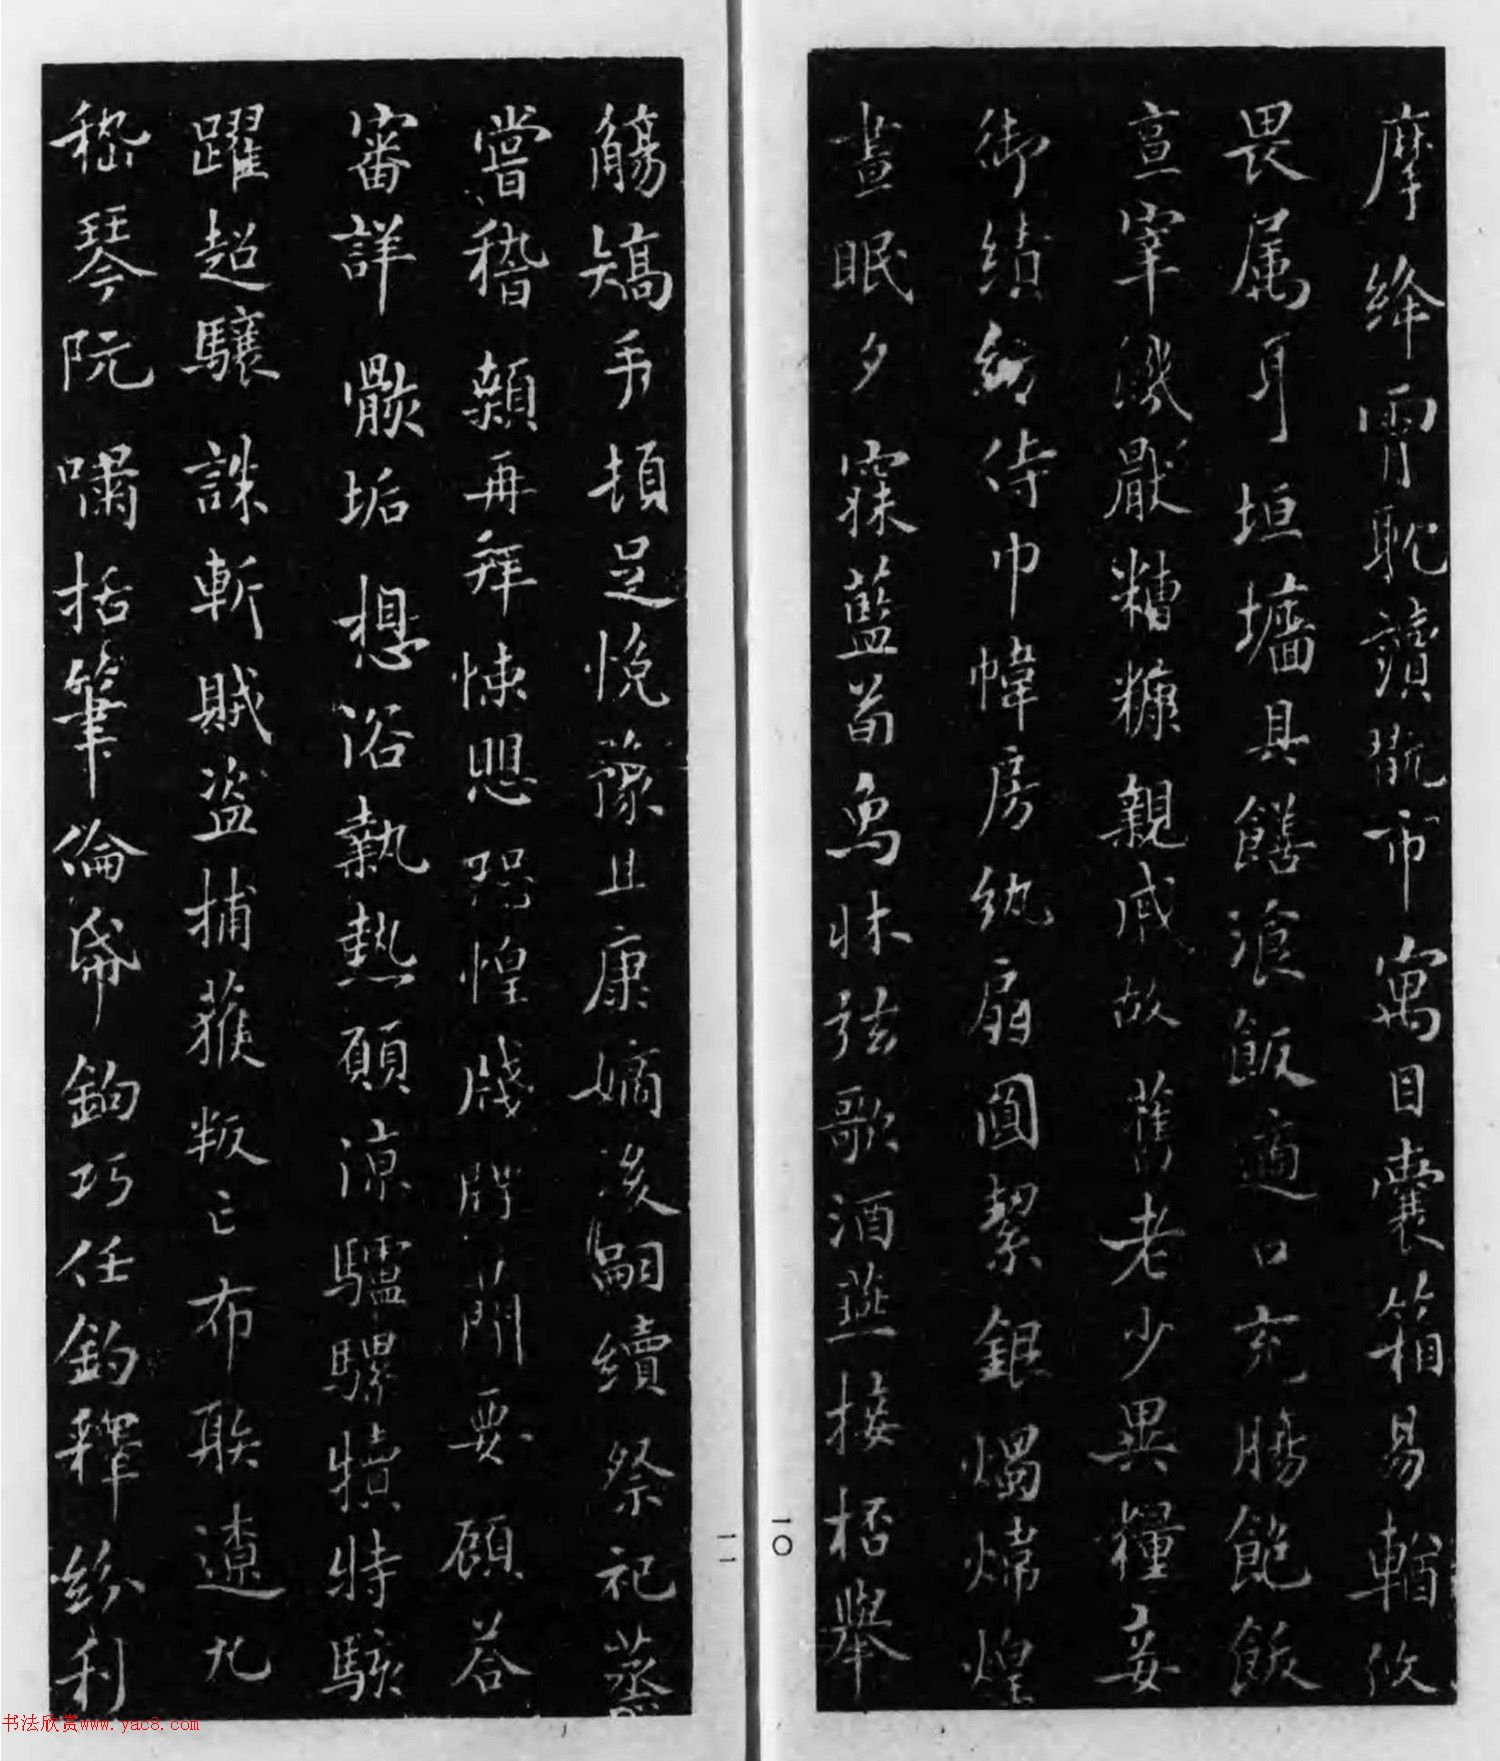 摩絳霄耽讀翫市寓目囊箱易輶攸
畏属耳垣墻具饍飡飯適口充腸飽飫
亨宰飢厭糟糠親戚故舊老少異糧妾
御績紡侍巾幃房紈扇圓絜銀燭煒煌
晝眠夕寐藍笋象牀弦歌酒燕接杯舉
一〇
觴矯手頓足悅豫且康嫡後嗣續祭祀蒸
嘗稽顙再拜悚懼恐惶牋牒蕑要顧答
審詳骸垢想浴執熱願涼驢騾犢特駭
躍超驤誅斬賊盗捕獲叛亡布射遼丸
嵇琴阮嘯恬筆倫帋鈞巧任釣釋紛利
一一
书法欣赏www.yac8.com